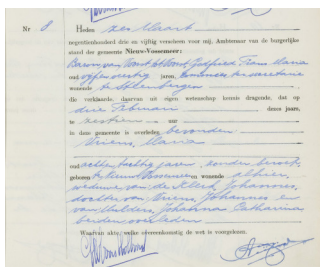 Nr 8 Heden zes Maart
negentienhonderd drie en vijftig verscheen voor mij, Ambtenaar van de burgerlijke
stand der gemeente Nieuw-Vossemeer:
Frans Maria
oud vijfenveertig jaren, ter secretarie
wonende te Steenbergen
die verklaarde, daarvan uit eigen wetenschap kennis dragende, dat op
drie Februari dezes jaars,
te zestien uur
in deze gemeente is overleden bevonden
Vriens, Maria
oud achtentachtig jaren zonder beroep,
geboren te Nieuw-Vossemeer en wonende alhier,
weduwe van de Klerk, Johannes,
dochter van Vriens, Johannes en
van Mulders, Johanna Catharina
beiden overleden
Waarvan akte, welke overeenkomstig de wet is voorgelezen.